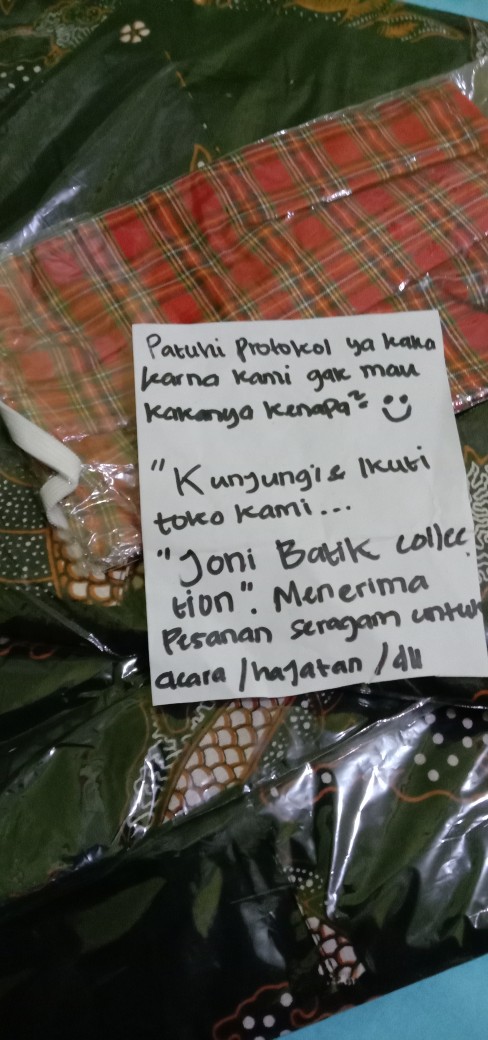 Patuhi Protokol ya kaka
karna kami gak mau
kakanya kenapa² :)
"Kunjungi & Ikuti
toko kami...
"Joni Batik collec
tion". Menerima
Pesanan seragam untuk
acara /hajatan /dll